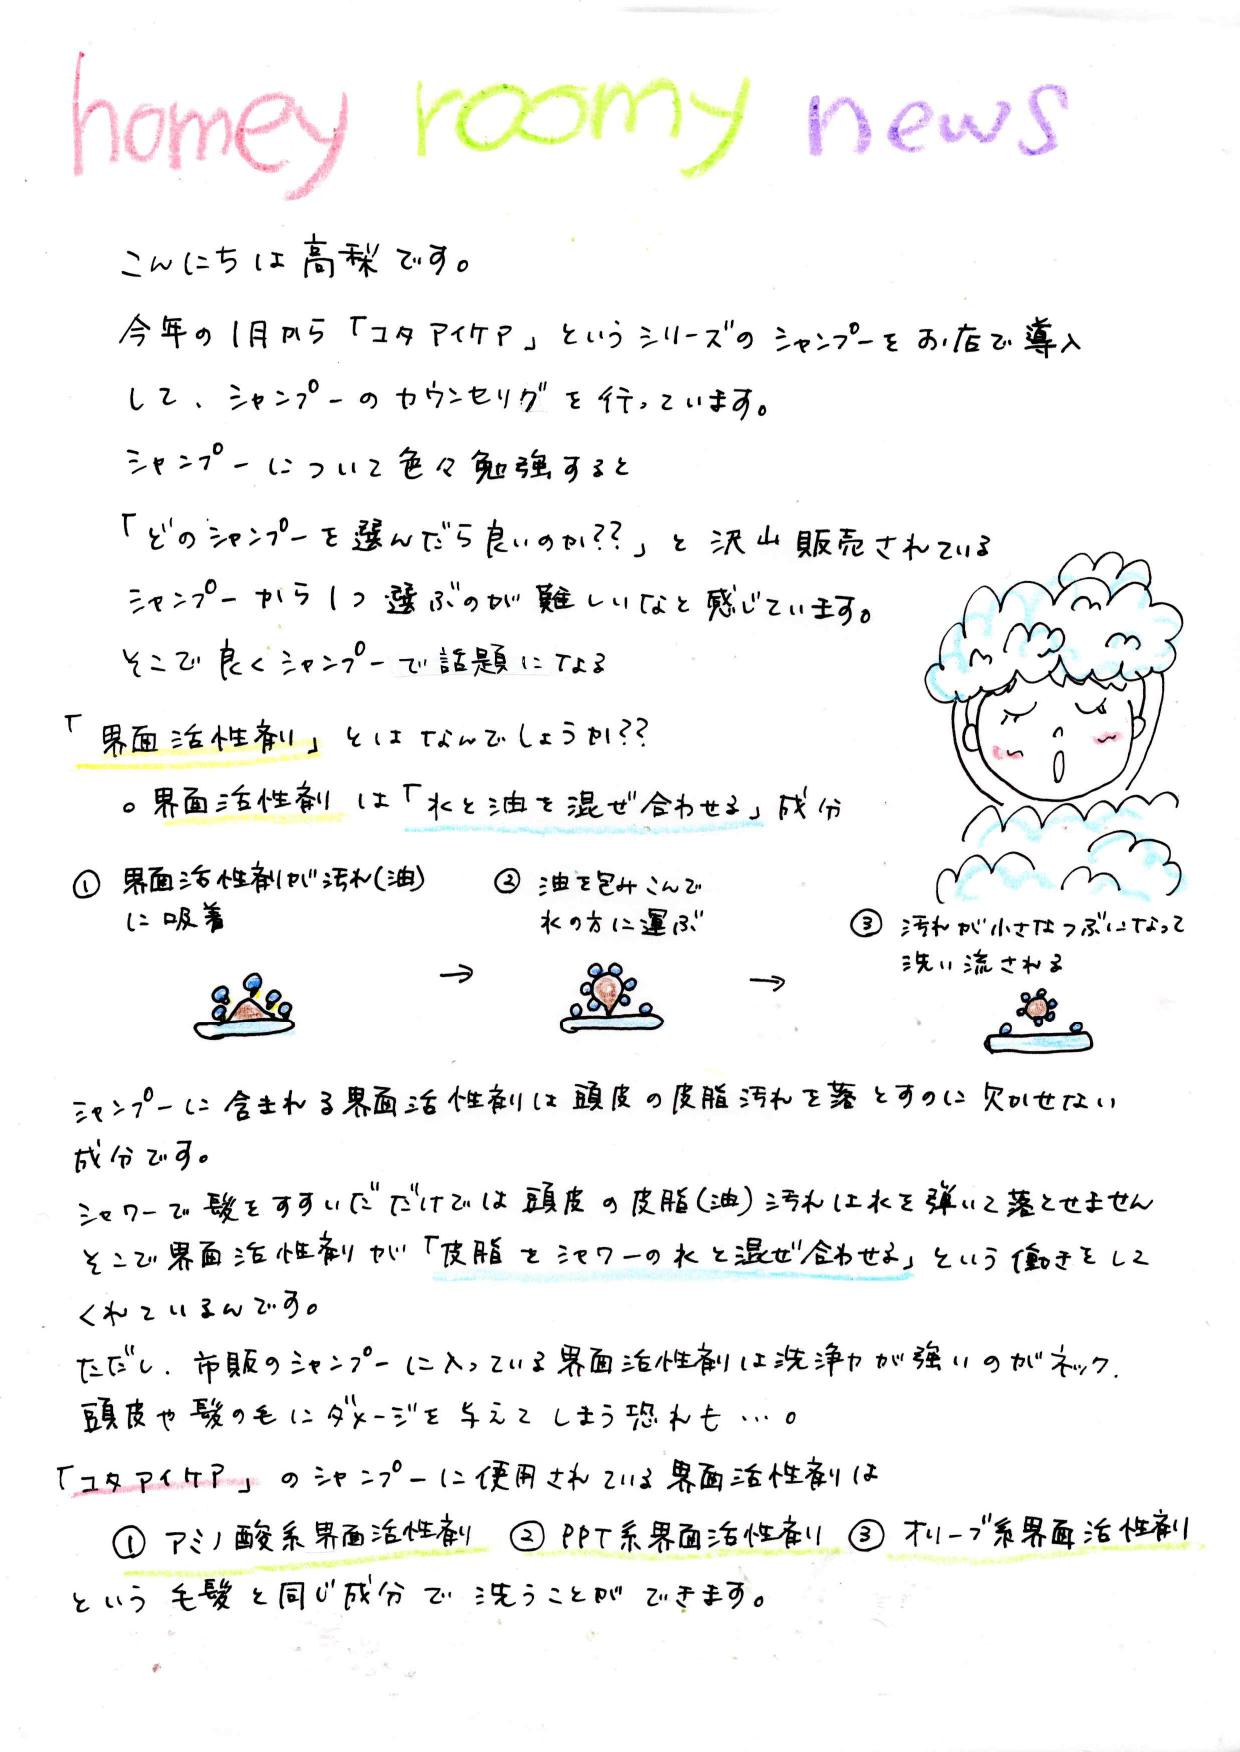 homey roomy news
こんにちは高梨です。
今年の1月から「コタアイケア」というシリーズのシャンプーをお店で導入
して、シャンプーのカウンセリグを行っています。
シャンプーについて色々勉強すると
「どのシャンプーを選んだら良いのか??」と沢山販売されている
シャンプーから1つ選ぶのが難しいなと感じています。
そこで良くシャンプーで話題になる
「界面活性剤」とはなんでしょうか??
○界面活性剤は「水と油を混ぜ合わせる」成分
① 界面活性剤が汚れ(油)
に吸着
② 油を包みこんで
水の方に運ぶ
③ 汚れが小さなつぶになって
洗い流される
→ →
シャンプーに含まれる界面活性剤は頭皮の皮脂汚れを落とすのに欠かせない
成分です。
シャワーで髪をすすいだだけでは頭皮の皮脂(油)汚れは水を弾いて落とせません
そこで界面活性剤が「皮脂をシャワーの水と混ぜ合わせる」という働きをして
くれているんです。
ただし、市販のシャンプーに入っている界面活性剤は洗浄力が強いのがネック、
頭皮や髪の毛にダメージを与えてしまう恐れも…。
「コタアイケア」のシャンプーに使用されている界面活性剤は
① アミノ酸系界面活性剤 ② PPT系界面活性剤 ③ オリーブ系界面活性剤
という毛髪と同じ成分で洗うことができます。